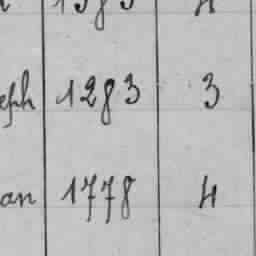 eph 1283 3
an 1778 4